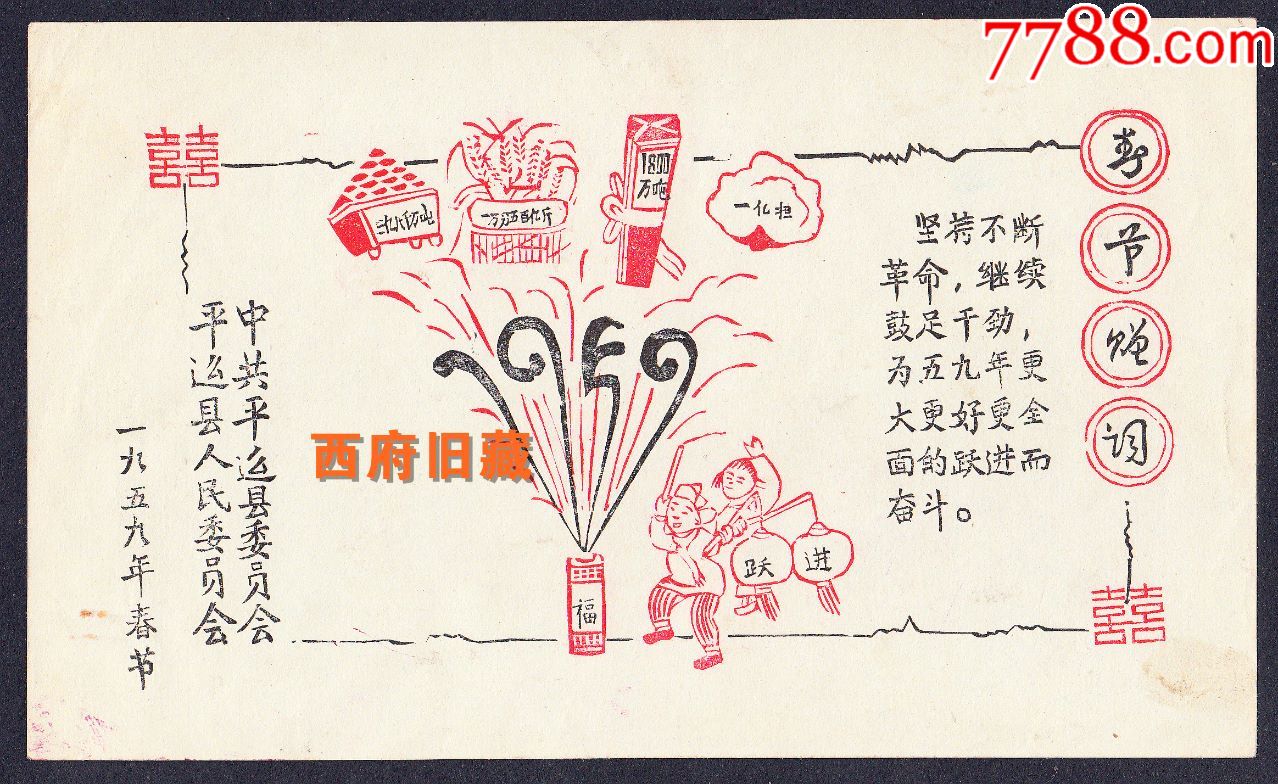 7788.com
春节赠词
1800
万吨
一亿担
坚持不断
革命，继续
鼓足干劲，
为五九年更
大更好更全
面的跃进而
奋斗。
1959
西府旧藏
跃进
福
中共平遥县委员会
平遥县人民委员会
一九五九年春节